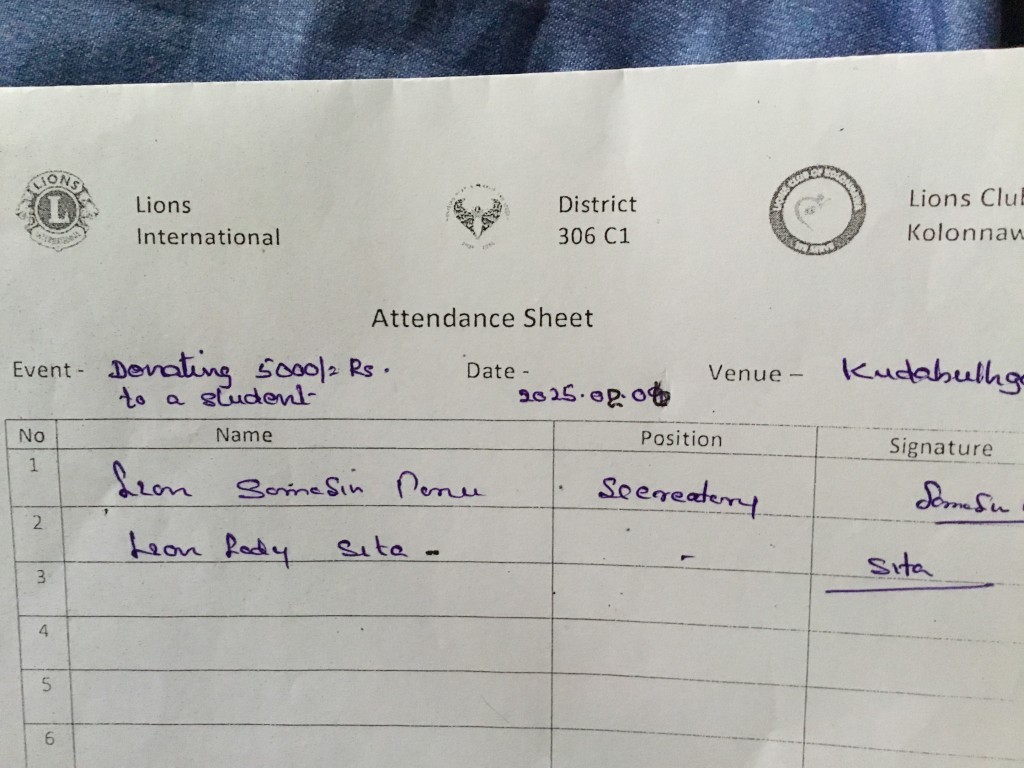 LIONS
L
INTERNATIONAL
Lions
International
District
306 C1
LIONS CLUB OF KOLONNAWA
Lions Club
Kolonnaw
Attendance Sheet
Event - Donating 5000/= Rs.
to a student
Date -
2025.02.0
Venue – Kudabuthg
No Name Position Signature
1 Lion Somasiri Secreatery
2 Lion Lady Sita - - Sita
3
4
5
6